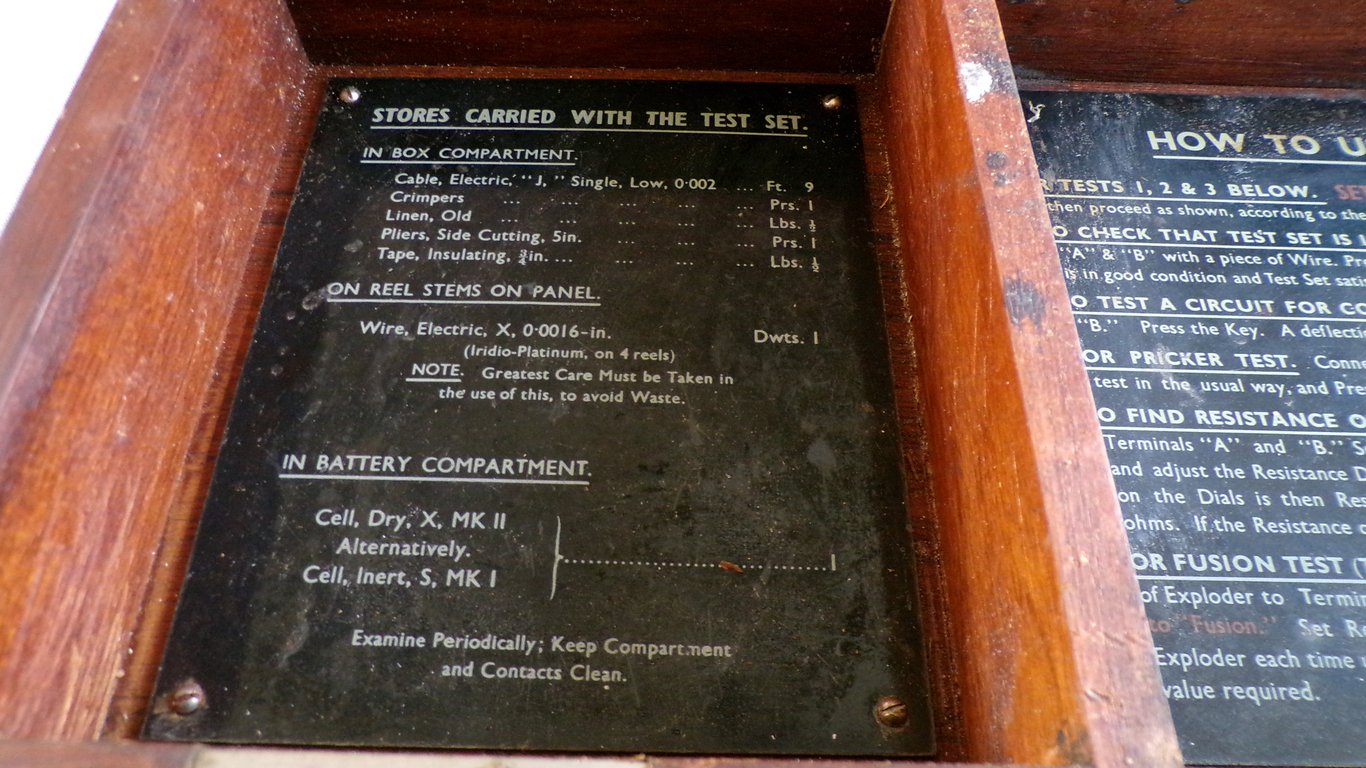 STORES CARRIED WITH THE TEST SET.
IN BOX COMPARTMENT.
Cable, Electric, "J," Single, Low, 0·002 ... Ft. 9
Crimpers ... ... ... ... ... Prs. 1
Linen, Old ... ... ... ... ... Lbs. ½
Pliers, Side Cutting, 5in. ... ... ... Prs. 1
Tape, Insulating, ¾in. ... ... ... ... Lbs. ½
ON REEL STEMS ON PANEL.
Wire, Electric, X, 0·0016-in. Dwts. 1
(Iridio-Platinum, on 4 reels)
NOTE. Greatest Care Must be Taken in
the use of this, to avoid Waste.
IN BATTERY COMPARTMENT.
Cell, Dry, X, MK II
Alternatively.
Cell, Inert, S, MK I
1
Examine Periodically; Keep Compartment
and Contacts Clean.
HOW TO U
R TESTS 1, 2 & 3 BELOW. SE
then proceed as shown, according to the
O CHECK THAT TEST SET IS I
"A" & "B" with a piece of Wire. Pre
is in good condition and Test Set sati
O TEST A CIRCUIT FOR CO
"B." Press the Key. A deflecti
OR PRICKER TEST. Conne
test in the usual way, and Pre
O FIND RESISTANCE O
Terminals "A" and "B." S
and adjust the Resistance D
on the Dials is then Re
ohms. If the Resistance
OR FUSION TEST (
of Exploder to Termin
to "Fusion." Set R
Exploder each time
value required.